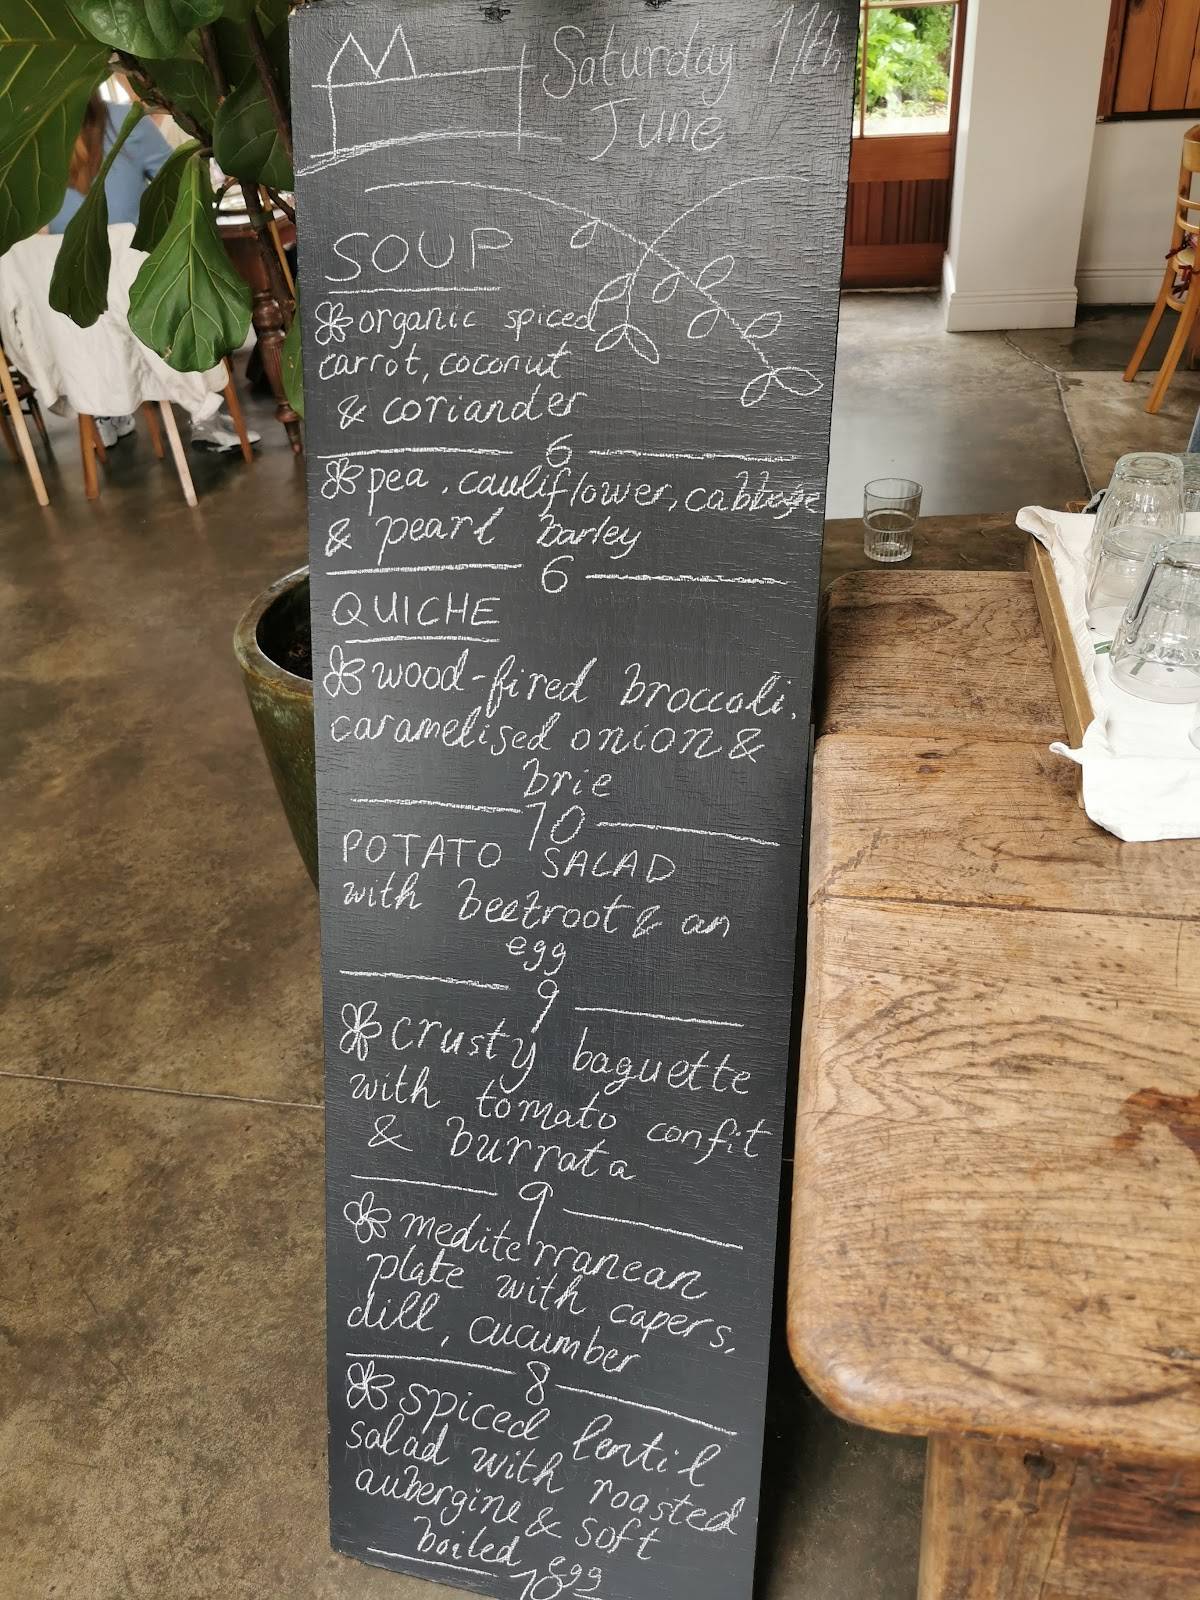 Saturday 11th
June
SOUP
organic spiced
carrot, coconut
& coriander
6
pea, cauliflower, cabbage
& pearl barley
6
QUICHE
wood-fired broccoli,
caramelised onion &
brie
10
POTATO SALAD
with beetroot & an
egg
9
crusty baguette
with tomato confit
& burrata
9
mediterranean
plate with capers,
dill, cucumber
8
spiced lentil
salad with roasted
aubergine & soft
boiled egg
10